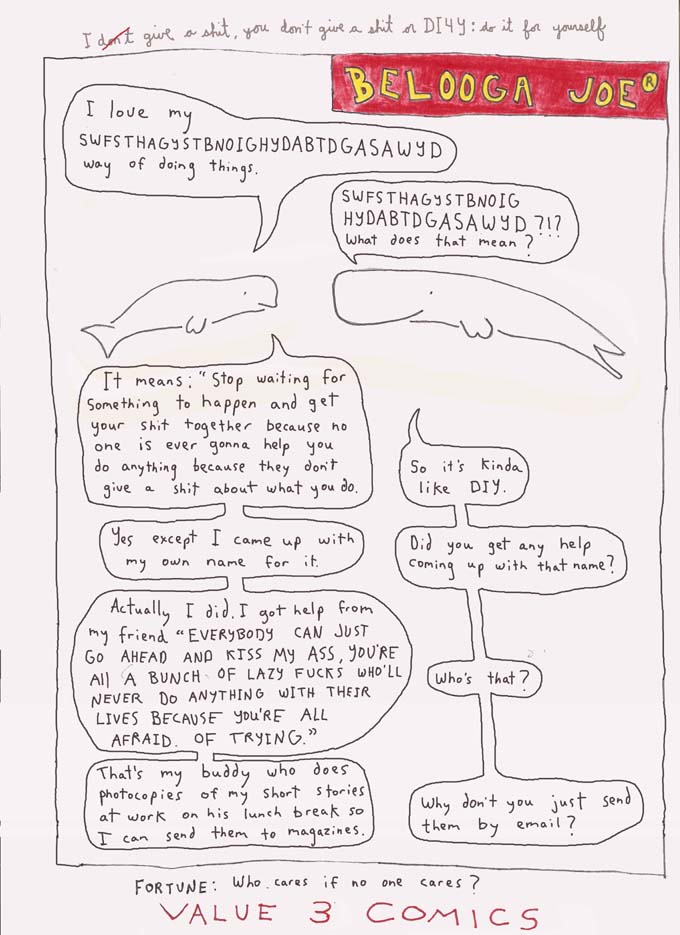 I don't give a shit, you don't give a shit or DI4Y: do it for yourself
BELOOGA JOE®
I love my
SWFSTHAGYSTBNOIGHYDABTDGASAWYD
way of doing things.
SWFSTHAGYSTBNOIG
HYDABTDGASAWYD ?!?
What does that mean?
It means: "Stop waiting for
something to happen and get
your shit together because no
one is ever gonna help you
do anything because they don't
give a shit about what you do.
So it's kinda
like DIY.
Yes except I came up with
my own name for it.
Did you get any help
coming up with that name?
Actually I did. I got help from
my friend "EVERYBODY CAN JUST
GO AHEAD AND KISS MY ASS, YOU'RE
All A BUNCH OF LAZY FUCKS WHO'LL
NEVER DO ANYTHING WITH THEIR
LIVES BECAUSE YOU'RE ALL
AFRAID. OF TRYING."
Who's that?
That's my buddy who does
photocopies of my short stories
at work on his lunch break so
I can send them to magazines.
Why don't you just send
them by email?
FORTUNE: Who cares if no one cares?
VALUE 3 COMICS